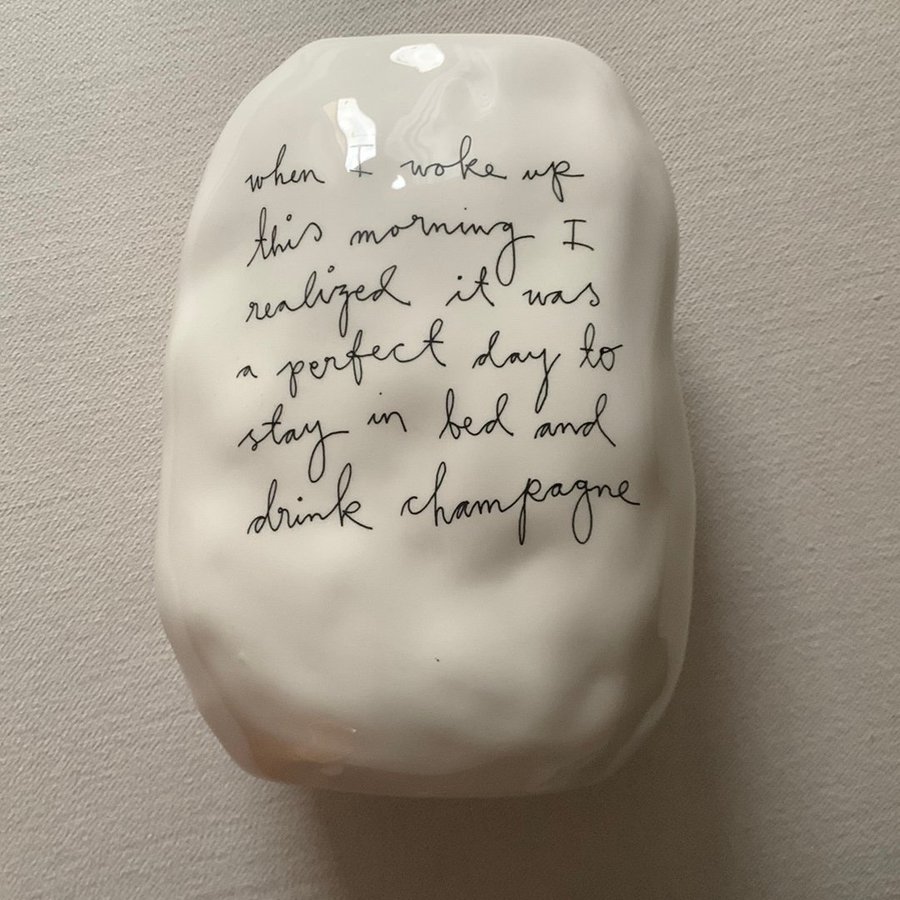 when I woke up
this morning I
realized it was
a perfect day to
stay in bed and
drink champagne